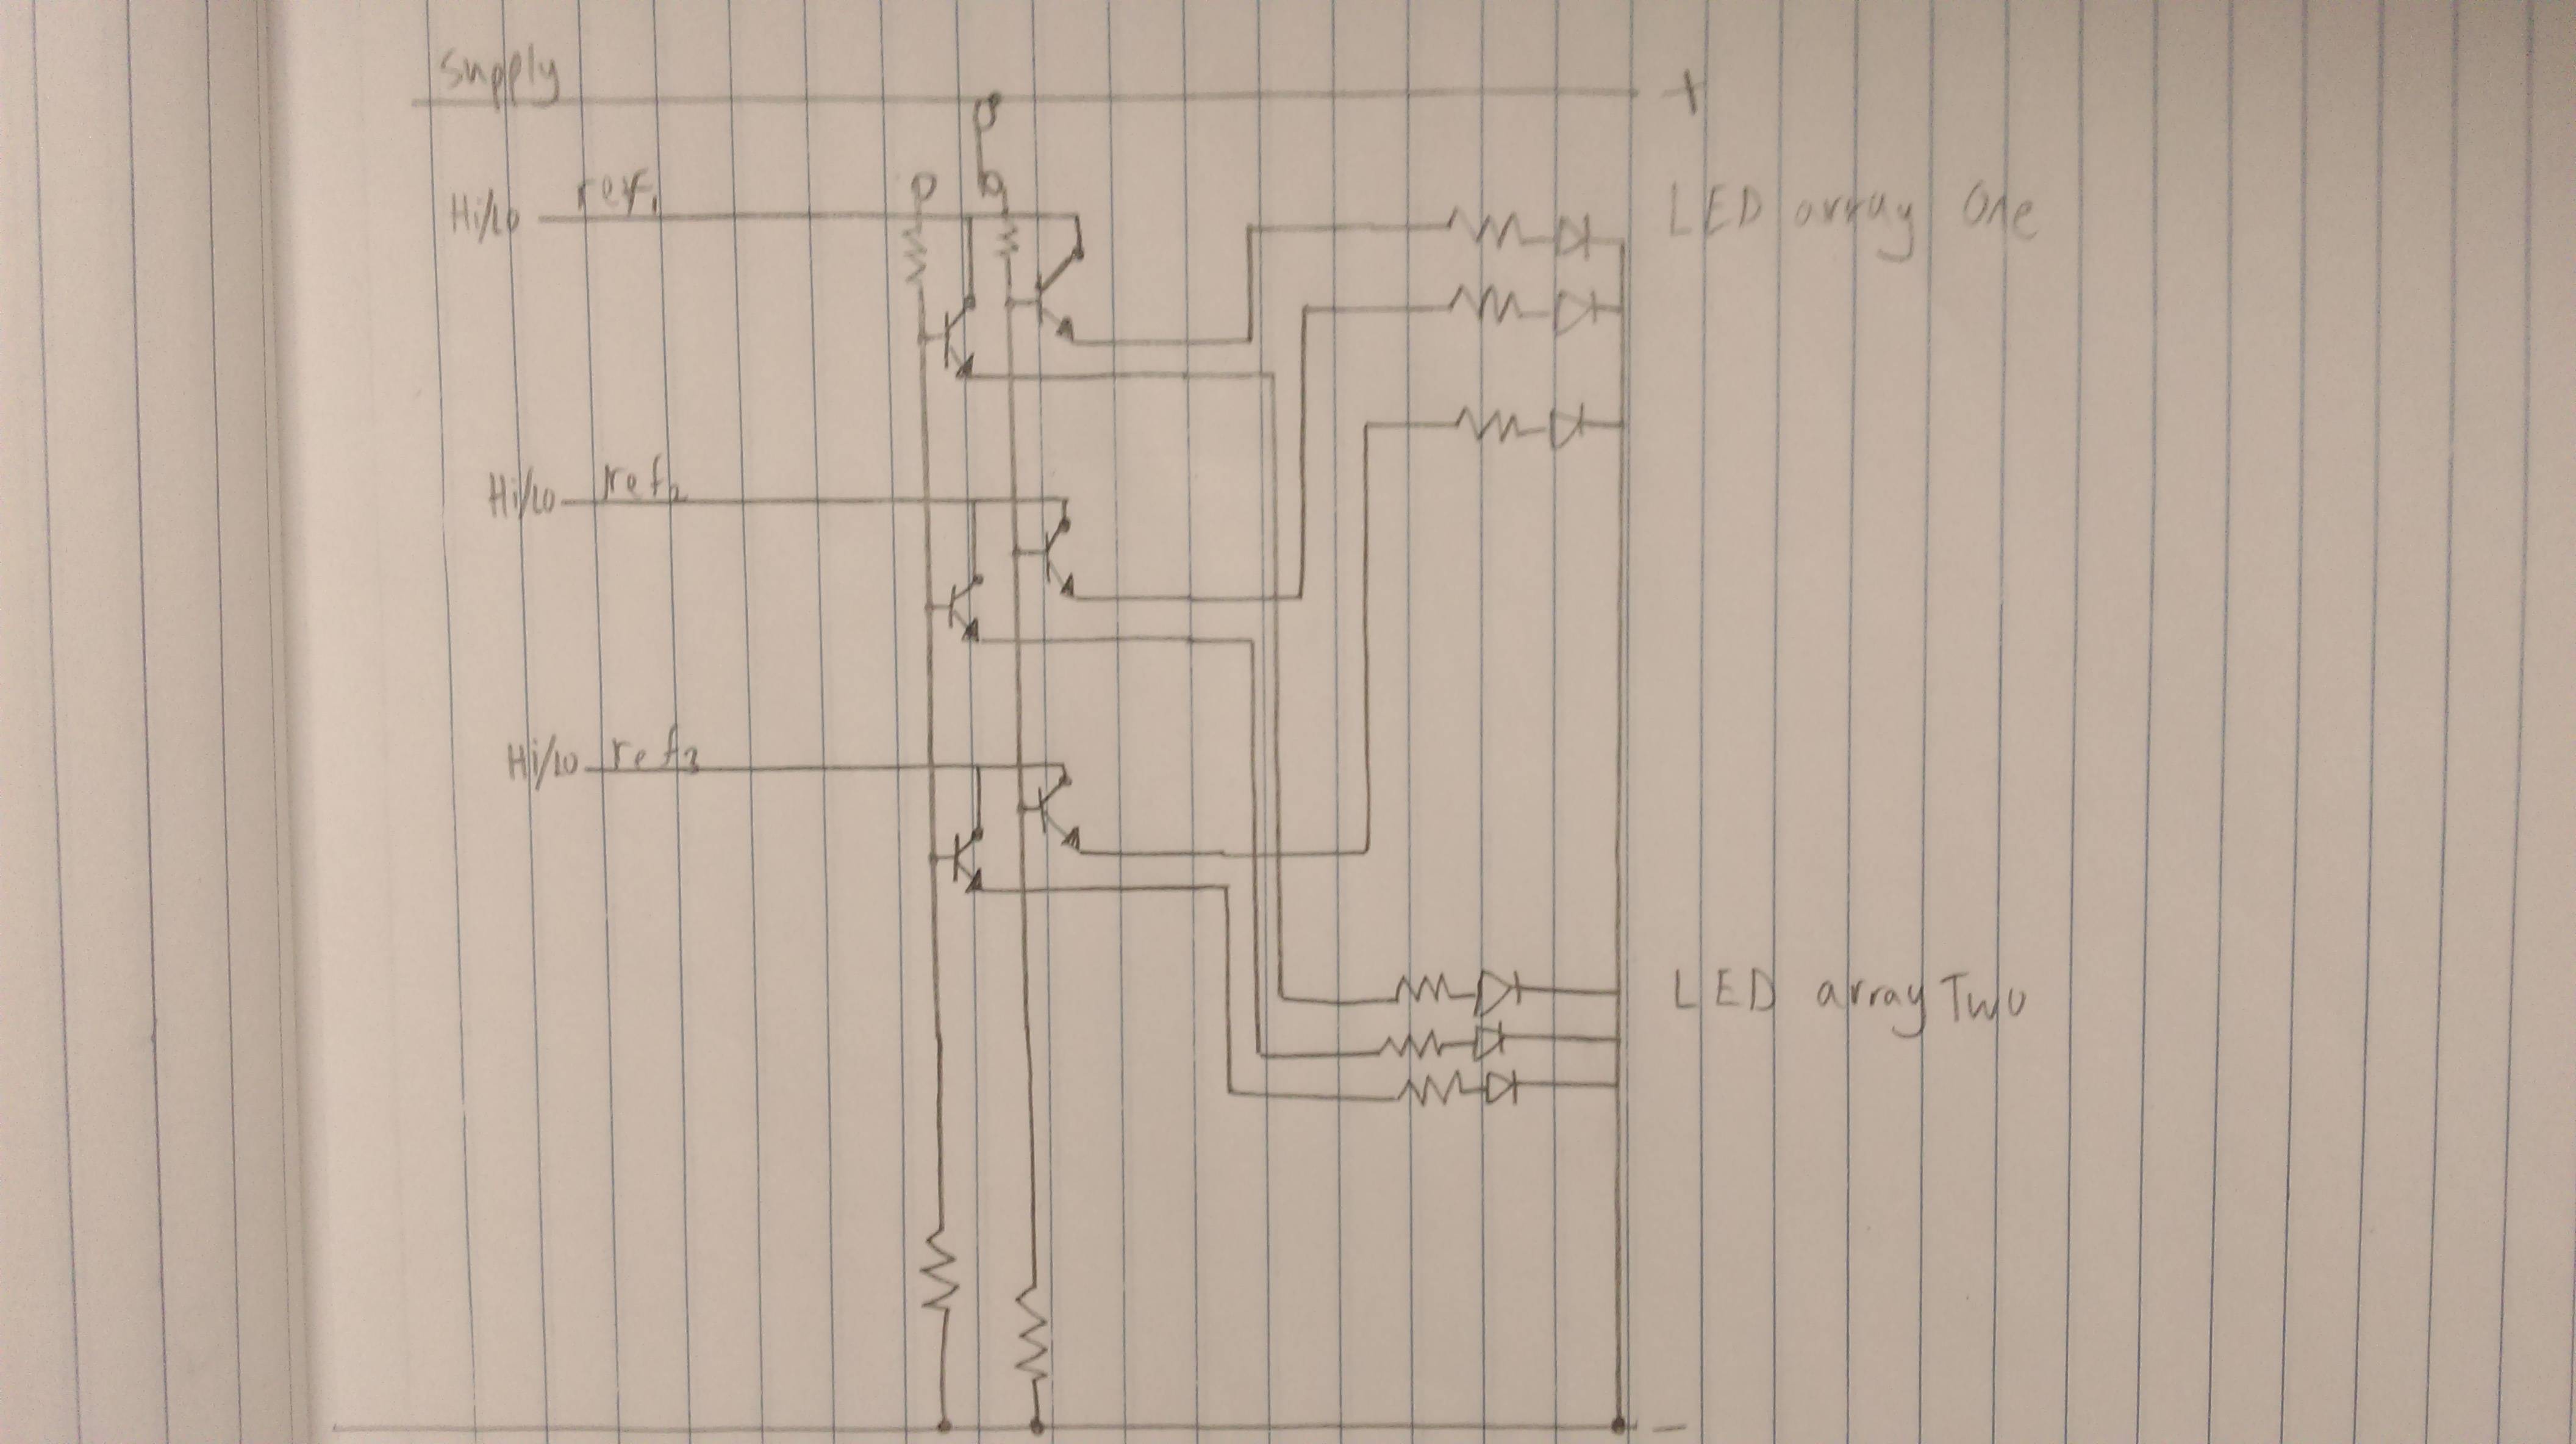 Supply
+
Hi/Lo ref1
LED array One
Hi/Lo ref2
Hi/Lo ref3
LED array Two
-